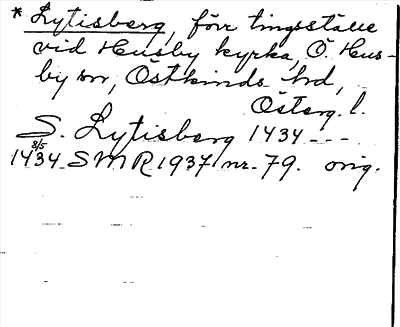 * Lytisberg, förr tingsställe
vid Husby kyrka, Ö. Hus-
by sn, Östkinds hd,
Österg. l.
S. Lytisberg 1434 ---
8/5
1434. SMR 1937 nr. 79. orig.